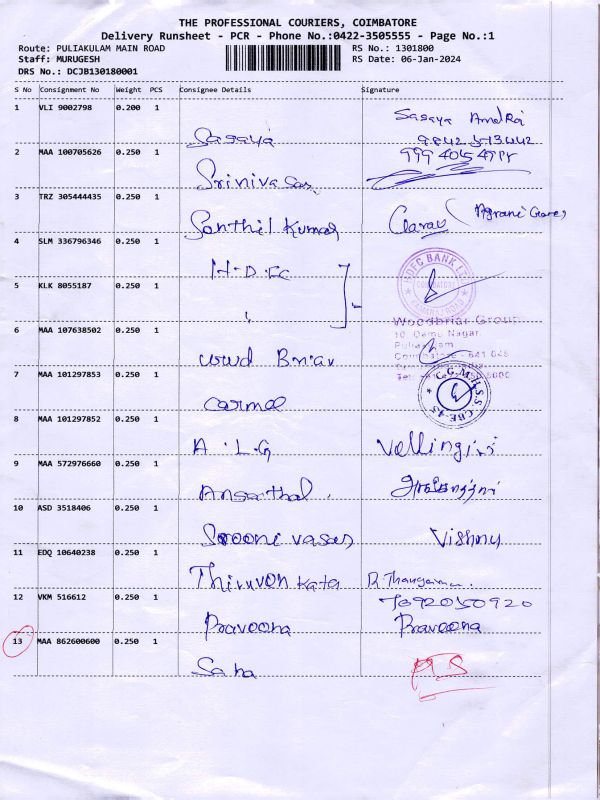 THE PROFESSIONAL COURIERS, COIMBATORE
Delivery Runsheet - PCR - Phone No.:0422-3505555 - Page No.:1
Route: PULIAKULAM MAIN ROAD RS No.: 1301800
Staff: MURUGESH RS Date: 06-Jan-2024
DRS No.: DCJB130180001
S No Consignment No Weight PCS Consignee Details Signature
1 VLI 9002798 0.200 1
Sasaya
2 MAA 100705626 0.250 1
Srinivasas
3 TRZ 305444435 0.250 1
Santhil Kumar
4 SLM 336796346 0.250 1
H-D-FC HDFC BANK LTD
5 KLK 8055187 0.250 1
Woodbriar Group
6 MAA 107638502 0.250 1
Puliakulam
Coimbatore - 641 045
7 MAA 101297853 0.250 1
Carmel
8 MAA 101297852 0.250 1
A.L.G Vellingiri
9 MAA 572976660 0.250 1
10 ASD 3518406 0.250 1
Srooni vasas Vishnu
11 EDQ 10640238 0.250 1
Thiruvon kata
12 VKM 516612 0.250 1 7092050920
Praveena Praveena
13 MAA 862600600 0.250 1
Saha